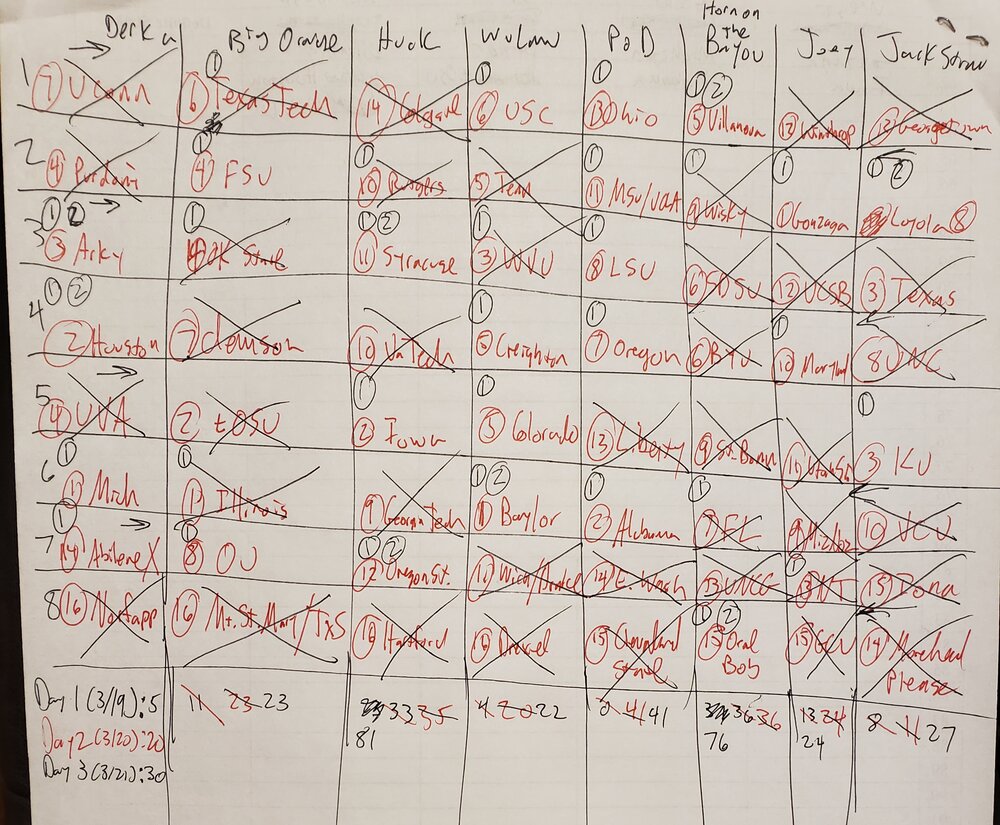 Derka Big Orange Huck Wulaw PoD Horn on the Bayou Joey Jack Straw
1 7 UConn 1 6 Texas Tech 14 Colgate 1 6 USC 1 13 Ohio 1 2 5 Villanova 12 Winthrop 12 Georgetown
2 4 Purdue 1 4 FSU 1 10 Rutgers 5 Tenn 1 11 MSU/UCLA 1 9 Wisky 1 1 Gonzaga 1 2 Loyola 8
3 1 2 3 Arky 1 4 OK State 1 2 11 Syracuse 1 3 WVU 1 8 LSU 6 SDSU 12 UCSB 3 Texas
4 1 2 2 Houston 7 Clemson 10 Va Tech 1 5 Creighton 1 7 Oregon 6 BYU 1 10 Maryland 8 UNC
5 4 UVA 2 tOSU 1 2 Iowa 1 5 Colorado 13 Liberty 9 St. Bonn 11 Utah St 1 3 KU
6 1 1 Mich 1 1 Illinois 9 Georgia Tech 1 2 1 Baylor 1 2 Alabama 1 7 FL 9 Mizzoz 10 VCU
7 1 14 Abilene X 1 8 OU 1 2 12 Oregon St. 11 Wich/Drake 14 E. Wash 13 UNCG 1 13 NT 15 Iona
8 16 Norfapp 16 Mt. St. Mary/TxS 16 Hartford 16 Drexel 15 Cleveland State 1 2 15 Oral Bob 15 GCU 14 Morehead Please
Day 1 (3/19): 5 11 23 23 33 35 4 20 22 41 41 36 36 13 24 8 11 27
Day 2 (3/20): 20 81 76 24
Day 3 (3/21): 30